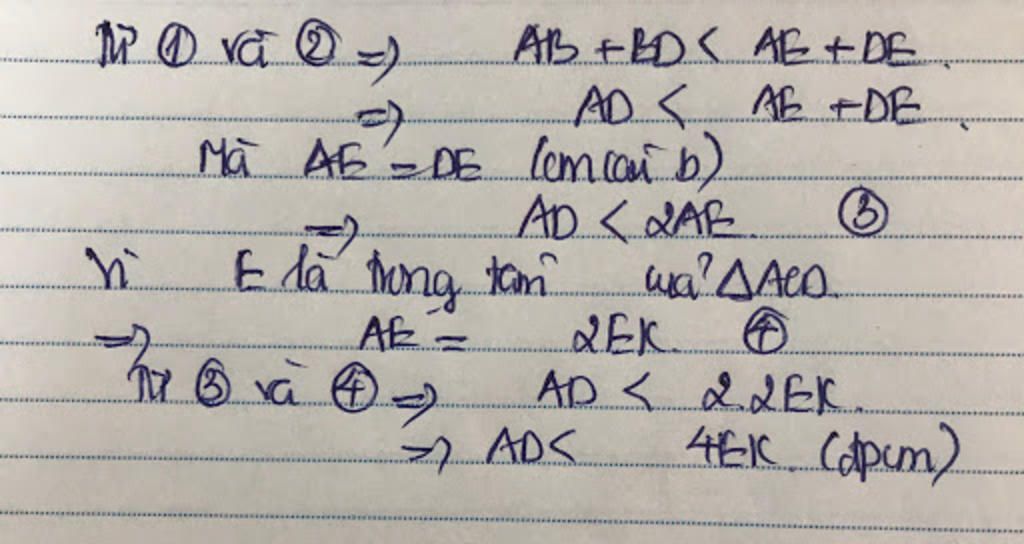 Từ ① và ② => AB + BD < AE + DE.
=> AD < AE + DE.
Mà AE = DE (cm câu b)
=> AD < 2AE. ③
Vì E là trọng tâm của ΔACD.
=> AE = 2EK. ④
Từ ③ và ④ => AD < 2.2EK.
=> AD < 4EK. (đpcm)